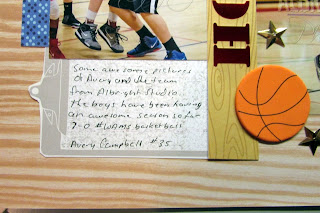 Some awesome pictures
of Avery and the team
from Albright Studio.
The boys have been having
an awesome season so far
7-0 #WAMS basketball
Avery Campbell #35